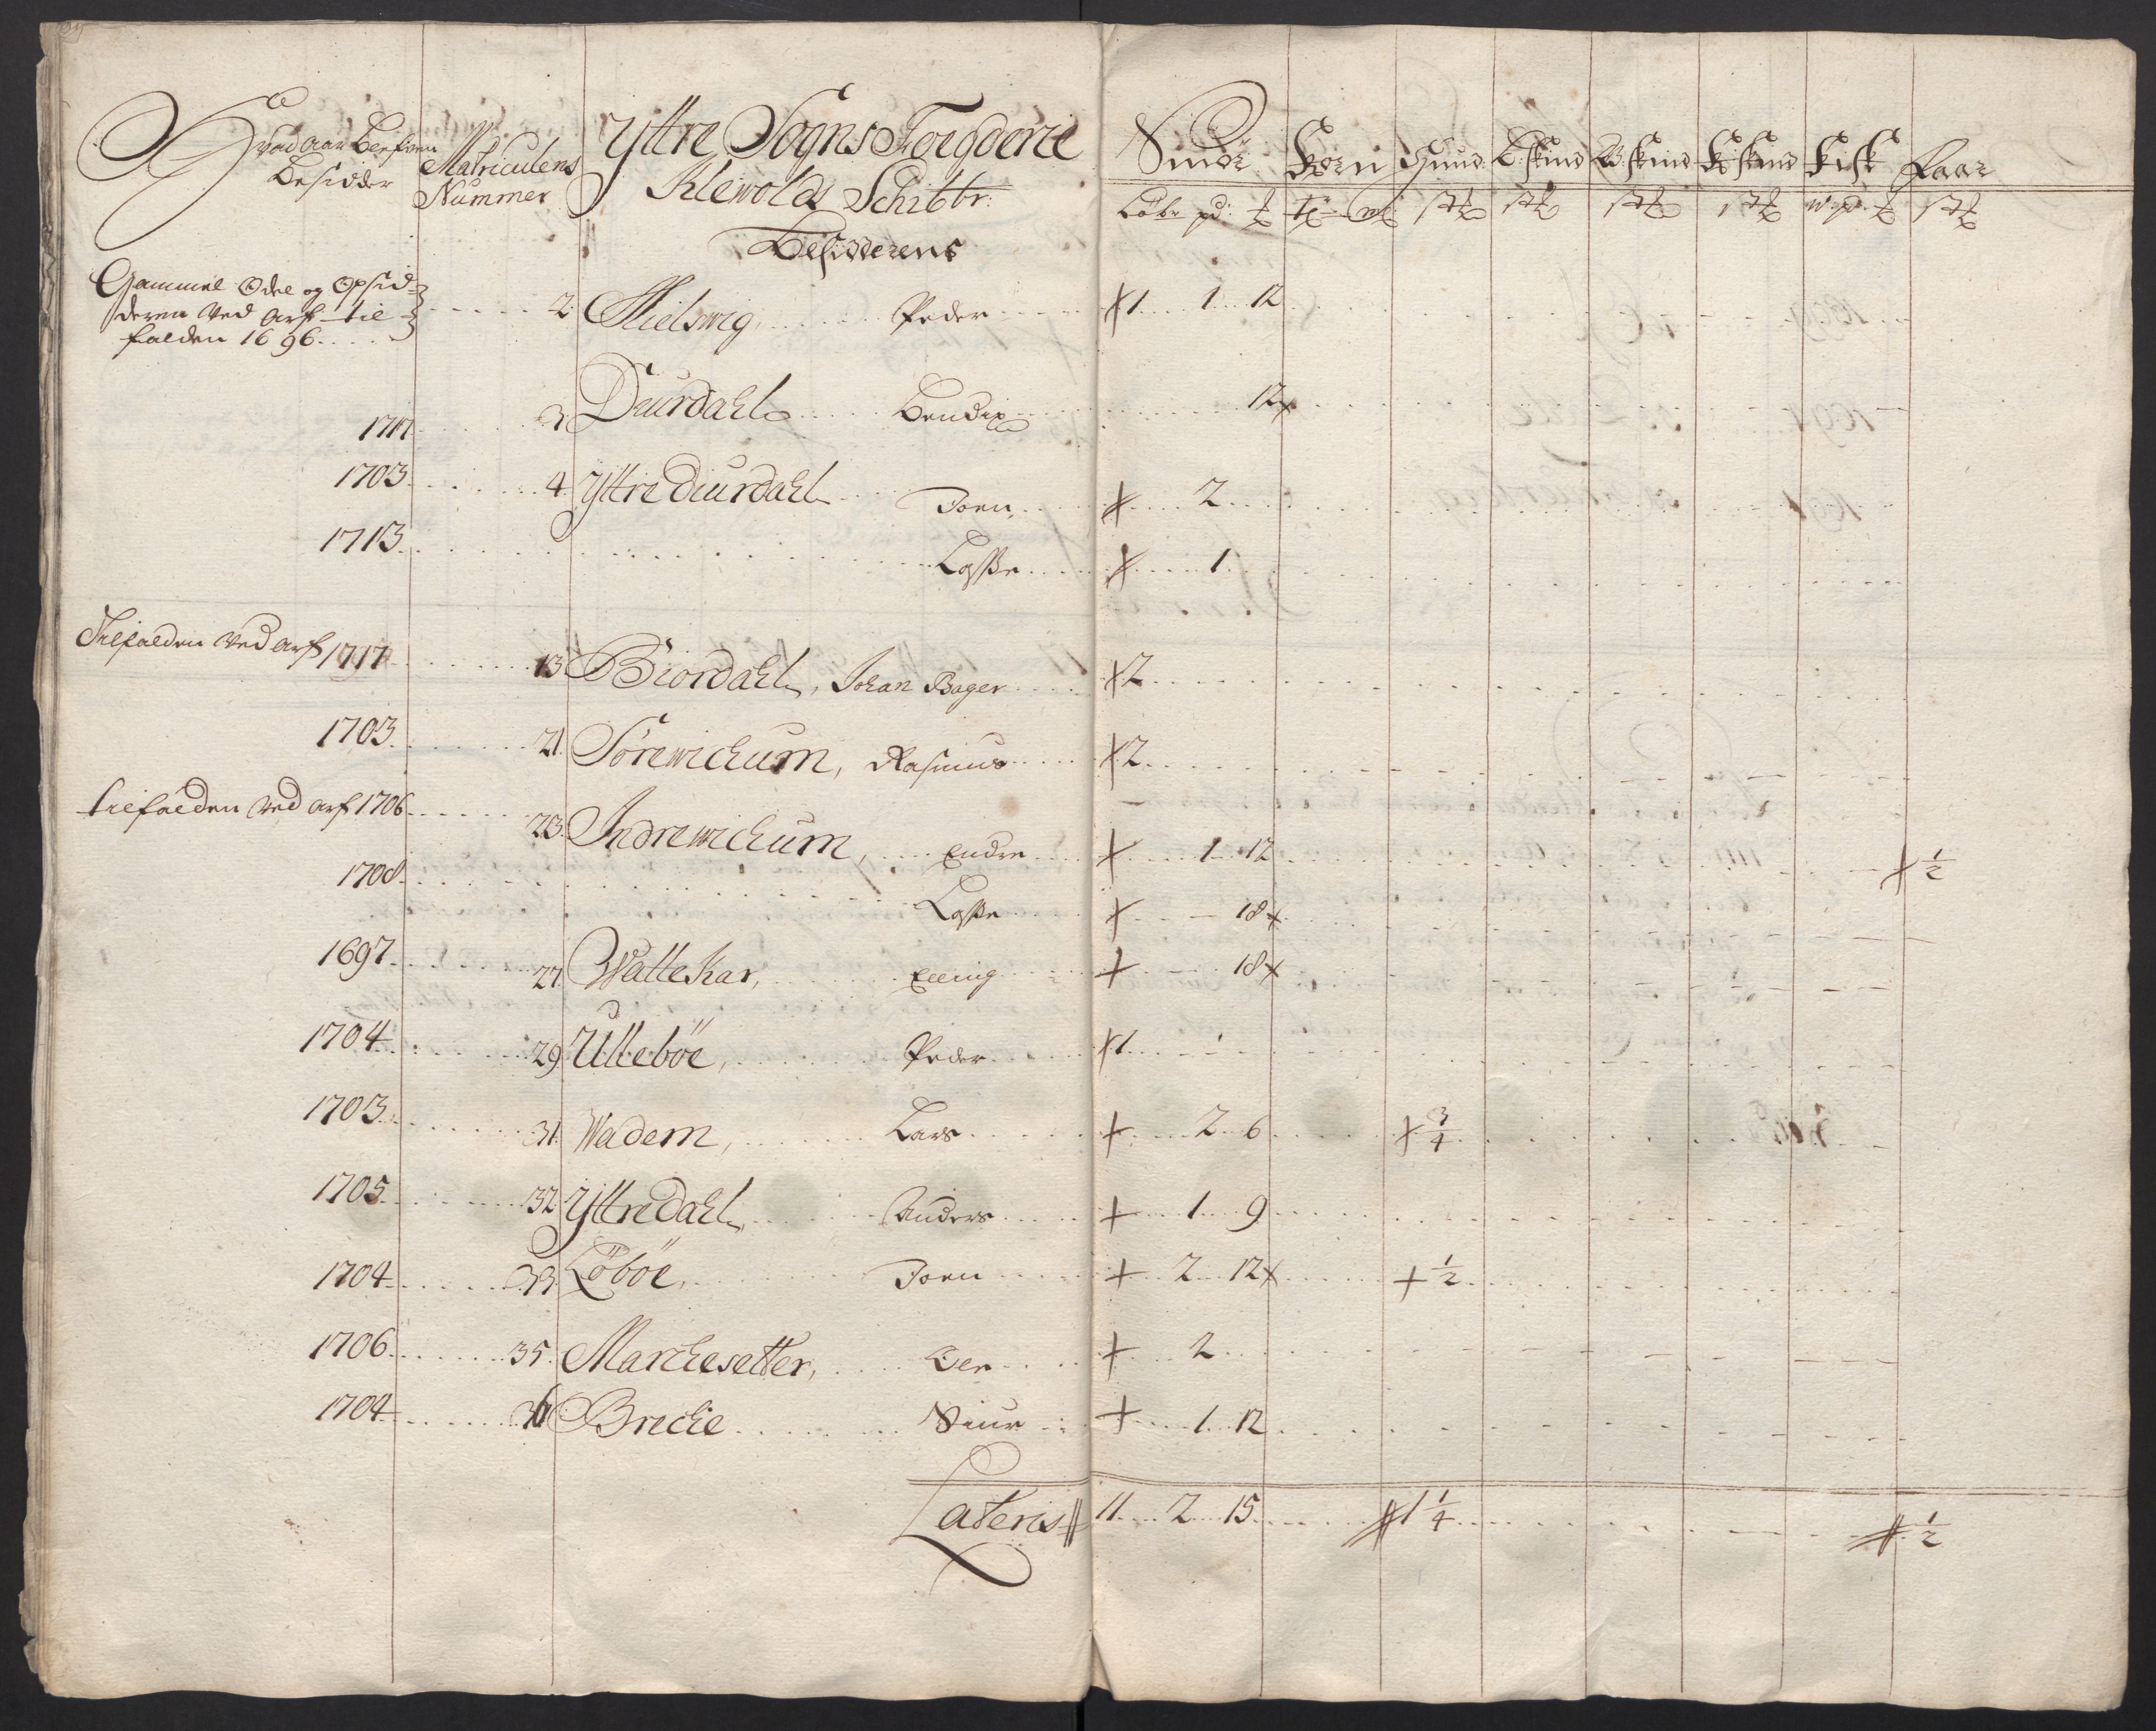 Hvad aar bewsen
Besidder
Matriculens
Nummer
Yttre Sogns Foegderie
Klewolds Schibbr:
Besidderens
Smör Korn Huud B:skind B:skind K:skind Fisk Faar
Löbr pd: ℔ stk stk stk stk stk
Gammel Odel og Opsid-
deren ved arf til-
falden 1696 2. Nielswig, Peder 1 1 12
1717 3 Duurdahl Bendix 12
1703 4 Yttre Diurdahl Joen, 2
1713 Lasse 1
Tilfalden ved arf 1717 13 Biordahl, Johan Bager 2
1703 21. Sörewichum, Rasmus 2
tilfalden ved arf 1706 23. Indrewichum, Endre 1 12 ½
1708 Lasse 18
1697 27. Wattekar, Elling 18
1704 29. Ulleböe, Peder 1
1703 31. Wadem, Lars 2 6 ¾
1705 32. Yttredahl Anders 1 9
1704 33. Löböe, Joen 2 12 ½
1706 35. Marchesetter, Oen 2
1704 36 Breche Siur 1 12
Lateris 11 2 15 1¼ ½